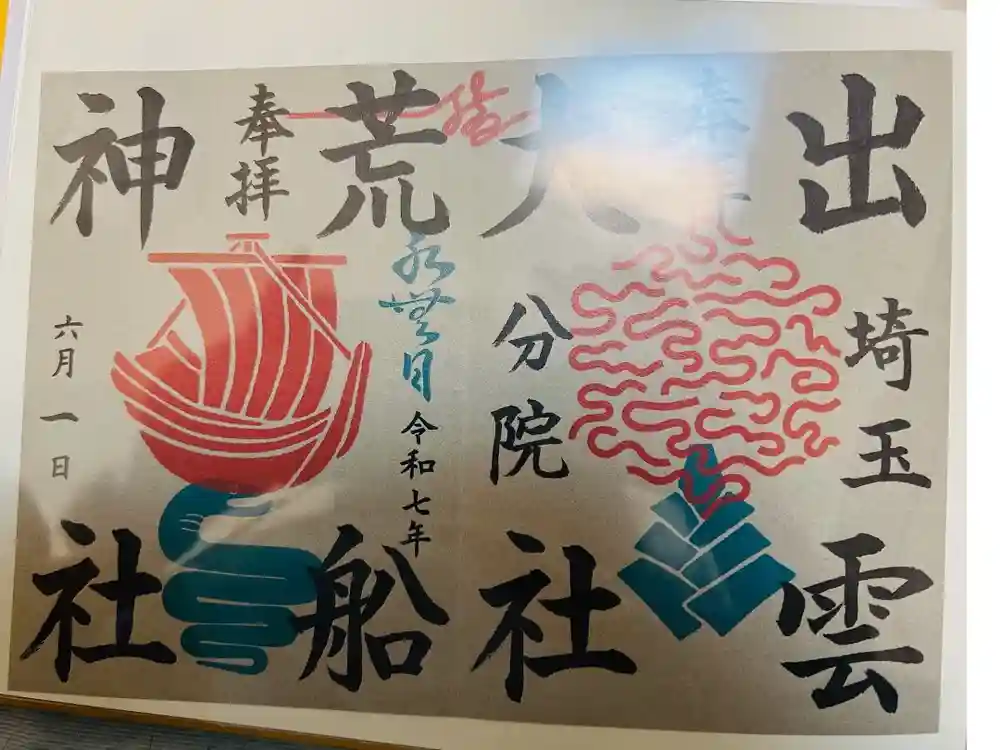 出雲
埼玉
奉拝
大社
分院
荒船
水無月
令和七年
奉拝
神社
六月一日